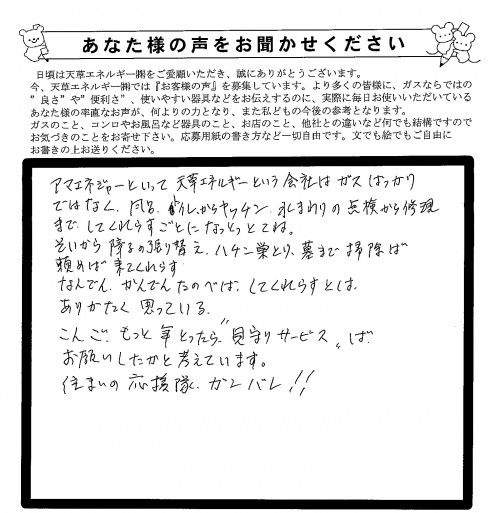 あなた様の声をお聞かせください
日頃は天草エネルギー㈱をご愛顧いただき、誠にありがとうございます。
今、天草エネルギー㈱では『お客様の声』を募集しています。より多くの皆様に、ガスならではの
”良さ”や”便利さ”、使いやすい器具などをお伝えするのに、実際に毎日お使いいただいている
あなた様の率直なお声が、何よりの力となり、また私どもの今後の参考となります。
ガスのこと、コンロやお風呂など器具のこと、お店のこと、他社との違いなど何でも結構ですので
お気づきのことをお寄せ下さい。応募用紙の書き方など一切自由です。文でも絵でもご自由に
お書きの上お送りください。
アマエネジャーといって天草エネルギーという会社はガスばっかり
ではなく、風呂、トイレからキッチン、水まわりの点検から修理
まで、してくれらすごとになっとっとね。
そいから障子の張り替え、ハチの巣とり、墓まで掃除ば
頼めば来てくれらす
なんでん、かんでんたのべば、してくれらすとは、
ありがたく思っている、
こんご、もっと年とったら、”見守りサービス”ば、
お願いしたかと考えています。
住まいの応援隊、ガンバレ!!